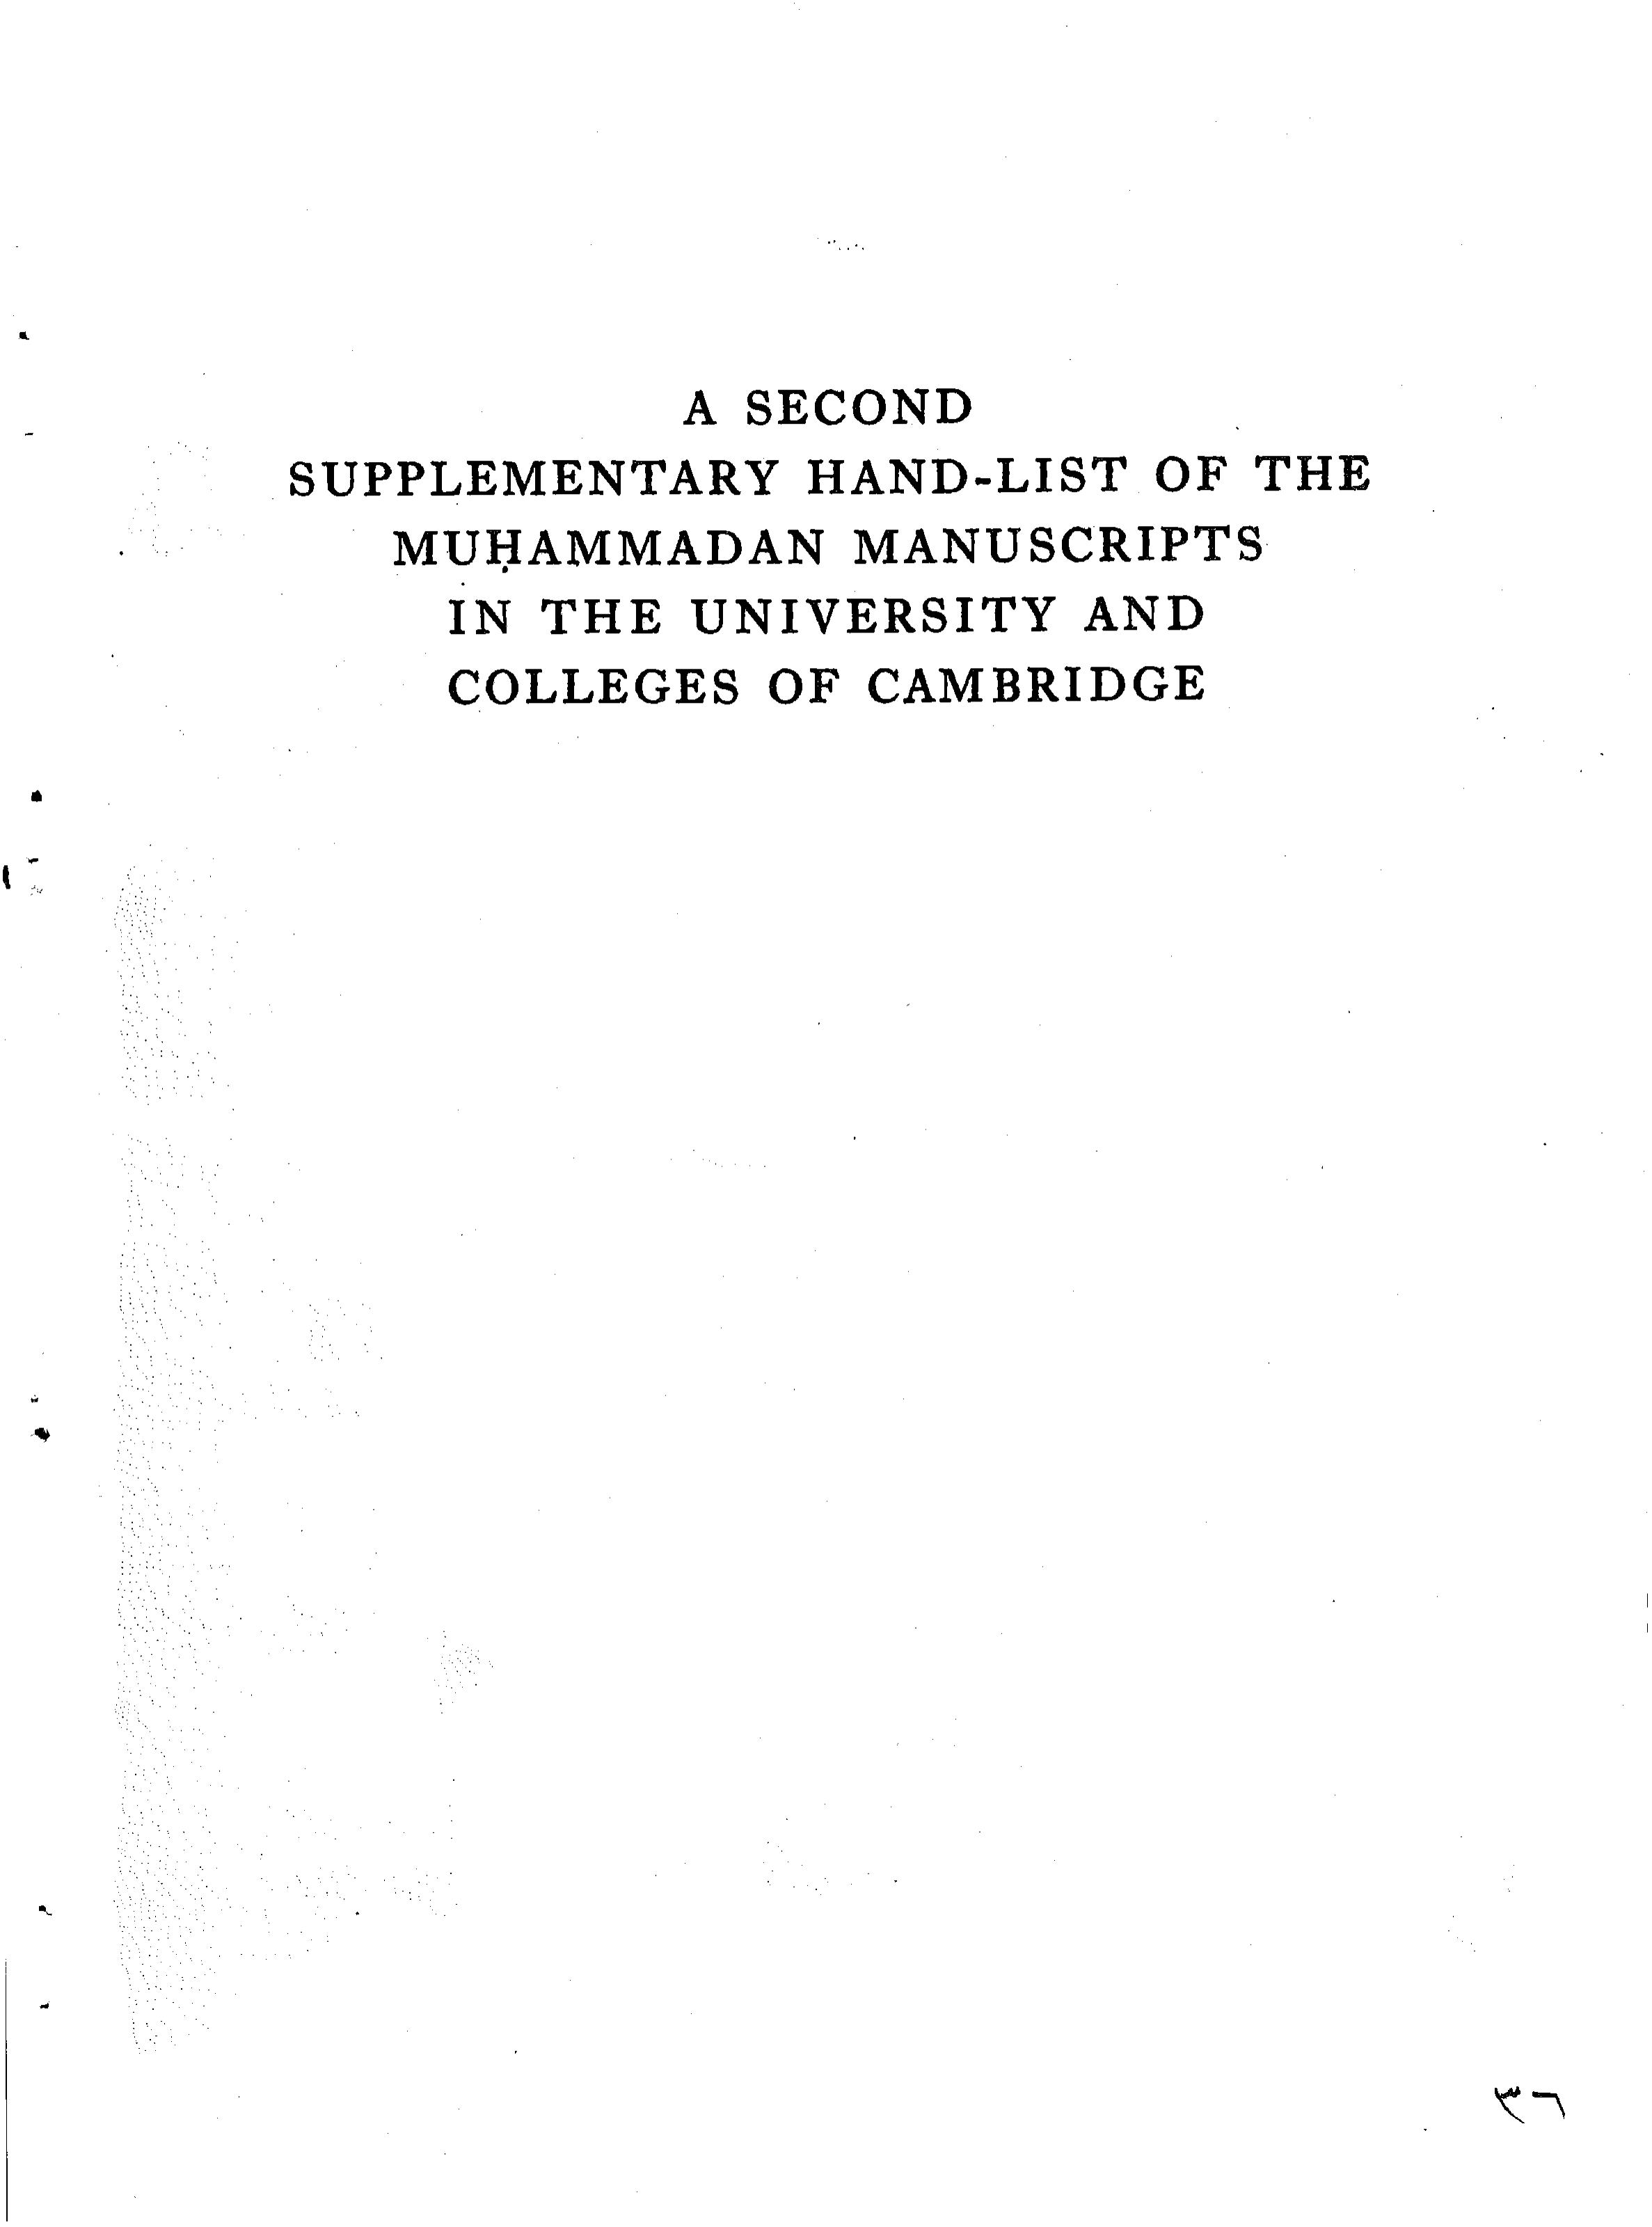 A SECOND
SUPPLEMENTARY HAND-LIST OF THE
MUḤAMMADAN MANUSCRIPTS
IN THE UNIVERSITY AND
COLLEGES OF CAMBRIDGE
٣٦